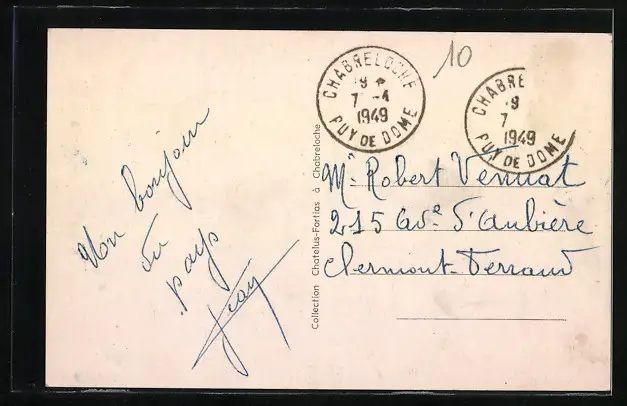 10
CHABRELOCHE
19 *
7 -4
1949
PUY DE DOME
CHABRE
19
7
1949
PUY DE DOME
Un bonjour
du
pays
Jean
Collection Chatelus-Fortias à Chabreloche
Mr Robert Vennat
215 Ave d'Aubière
Clermont-Ferrand